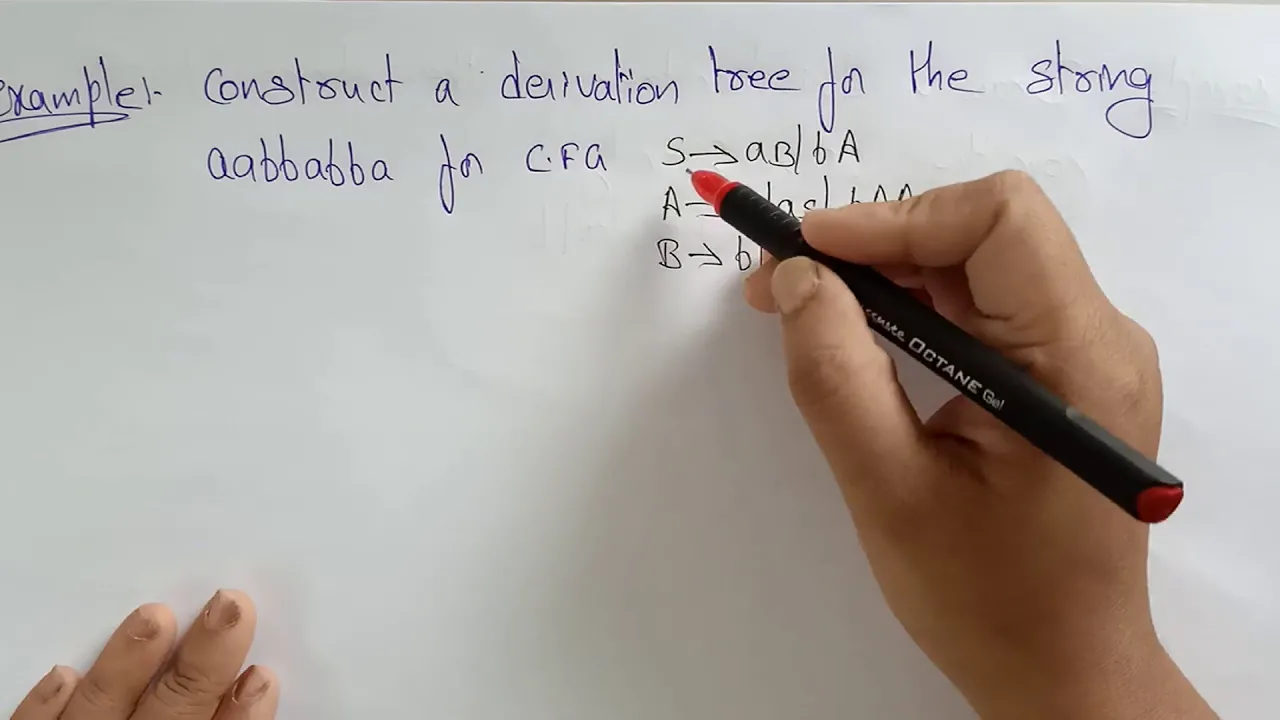 Example:- Construct a derivation tree for the string
aabbabba for C.F.G S→aB/bA
A→ /as/bAA
B→b/
accurate OCTANE Gel